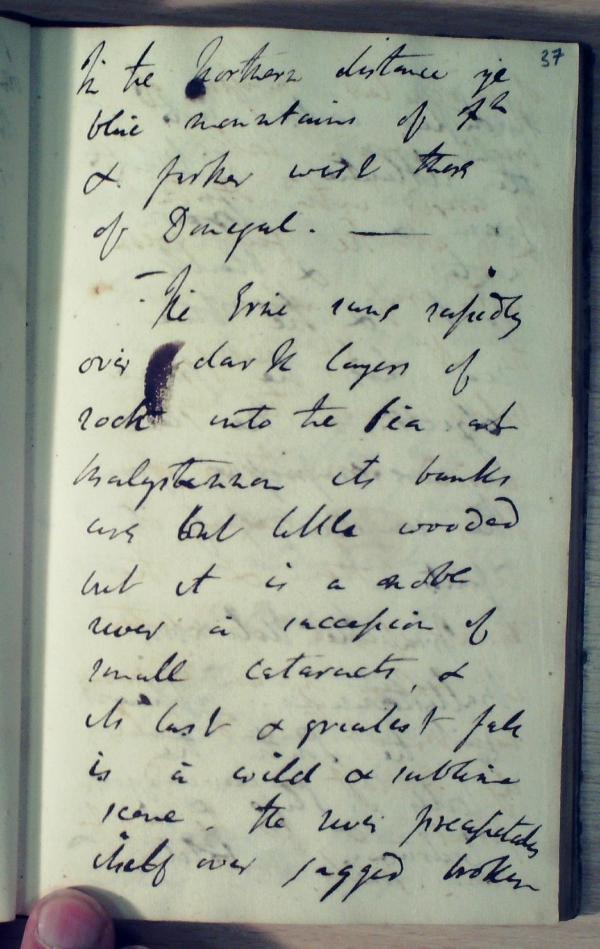 37
In the Northern distance ye
blue mountains of
& further west those
of Donegal. —
The Erne runs rapidly
over dark layers of
rock into the Sea at
Balyshannon its banks
are but little wooded
but it is a noble
river a succession of
small cataracts, &
its last & greatest fall
is a wild & sublime
scene. the river precipitates
itself over jagged broken